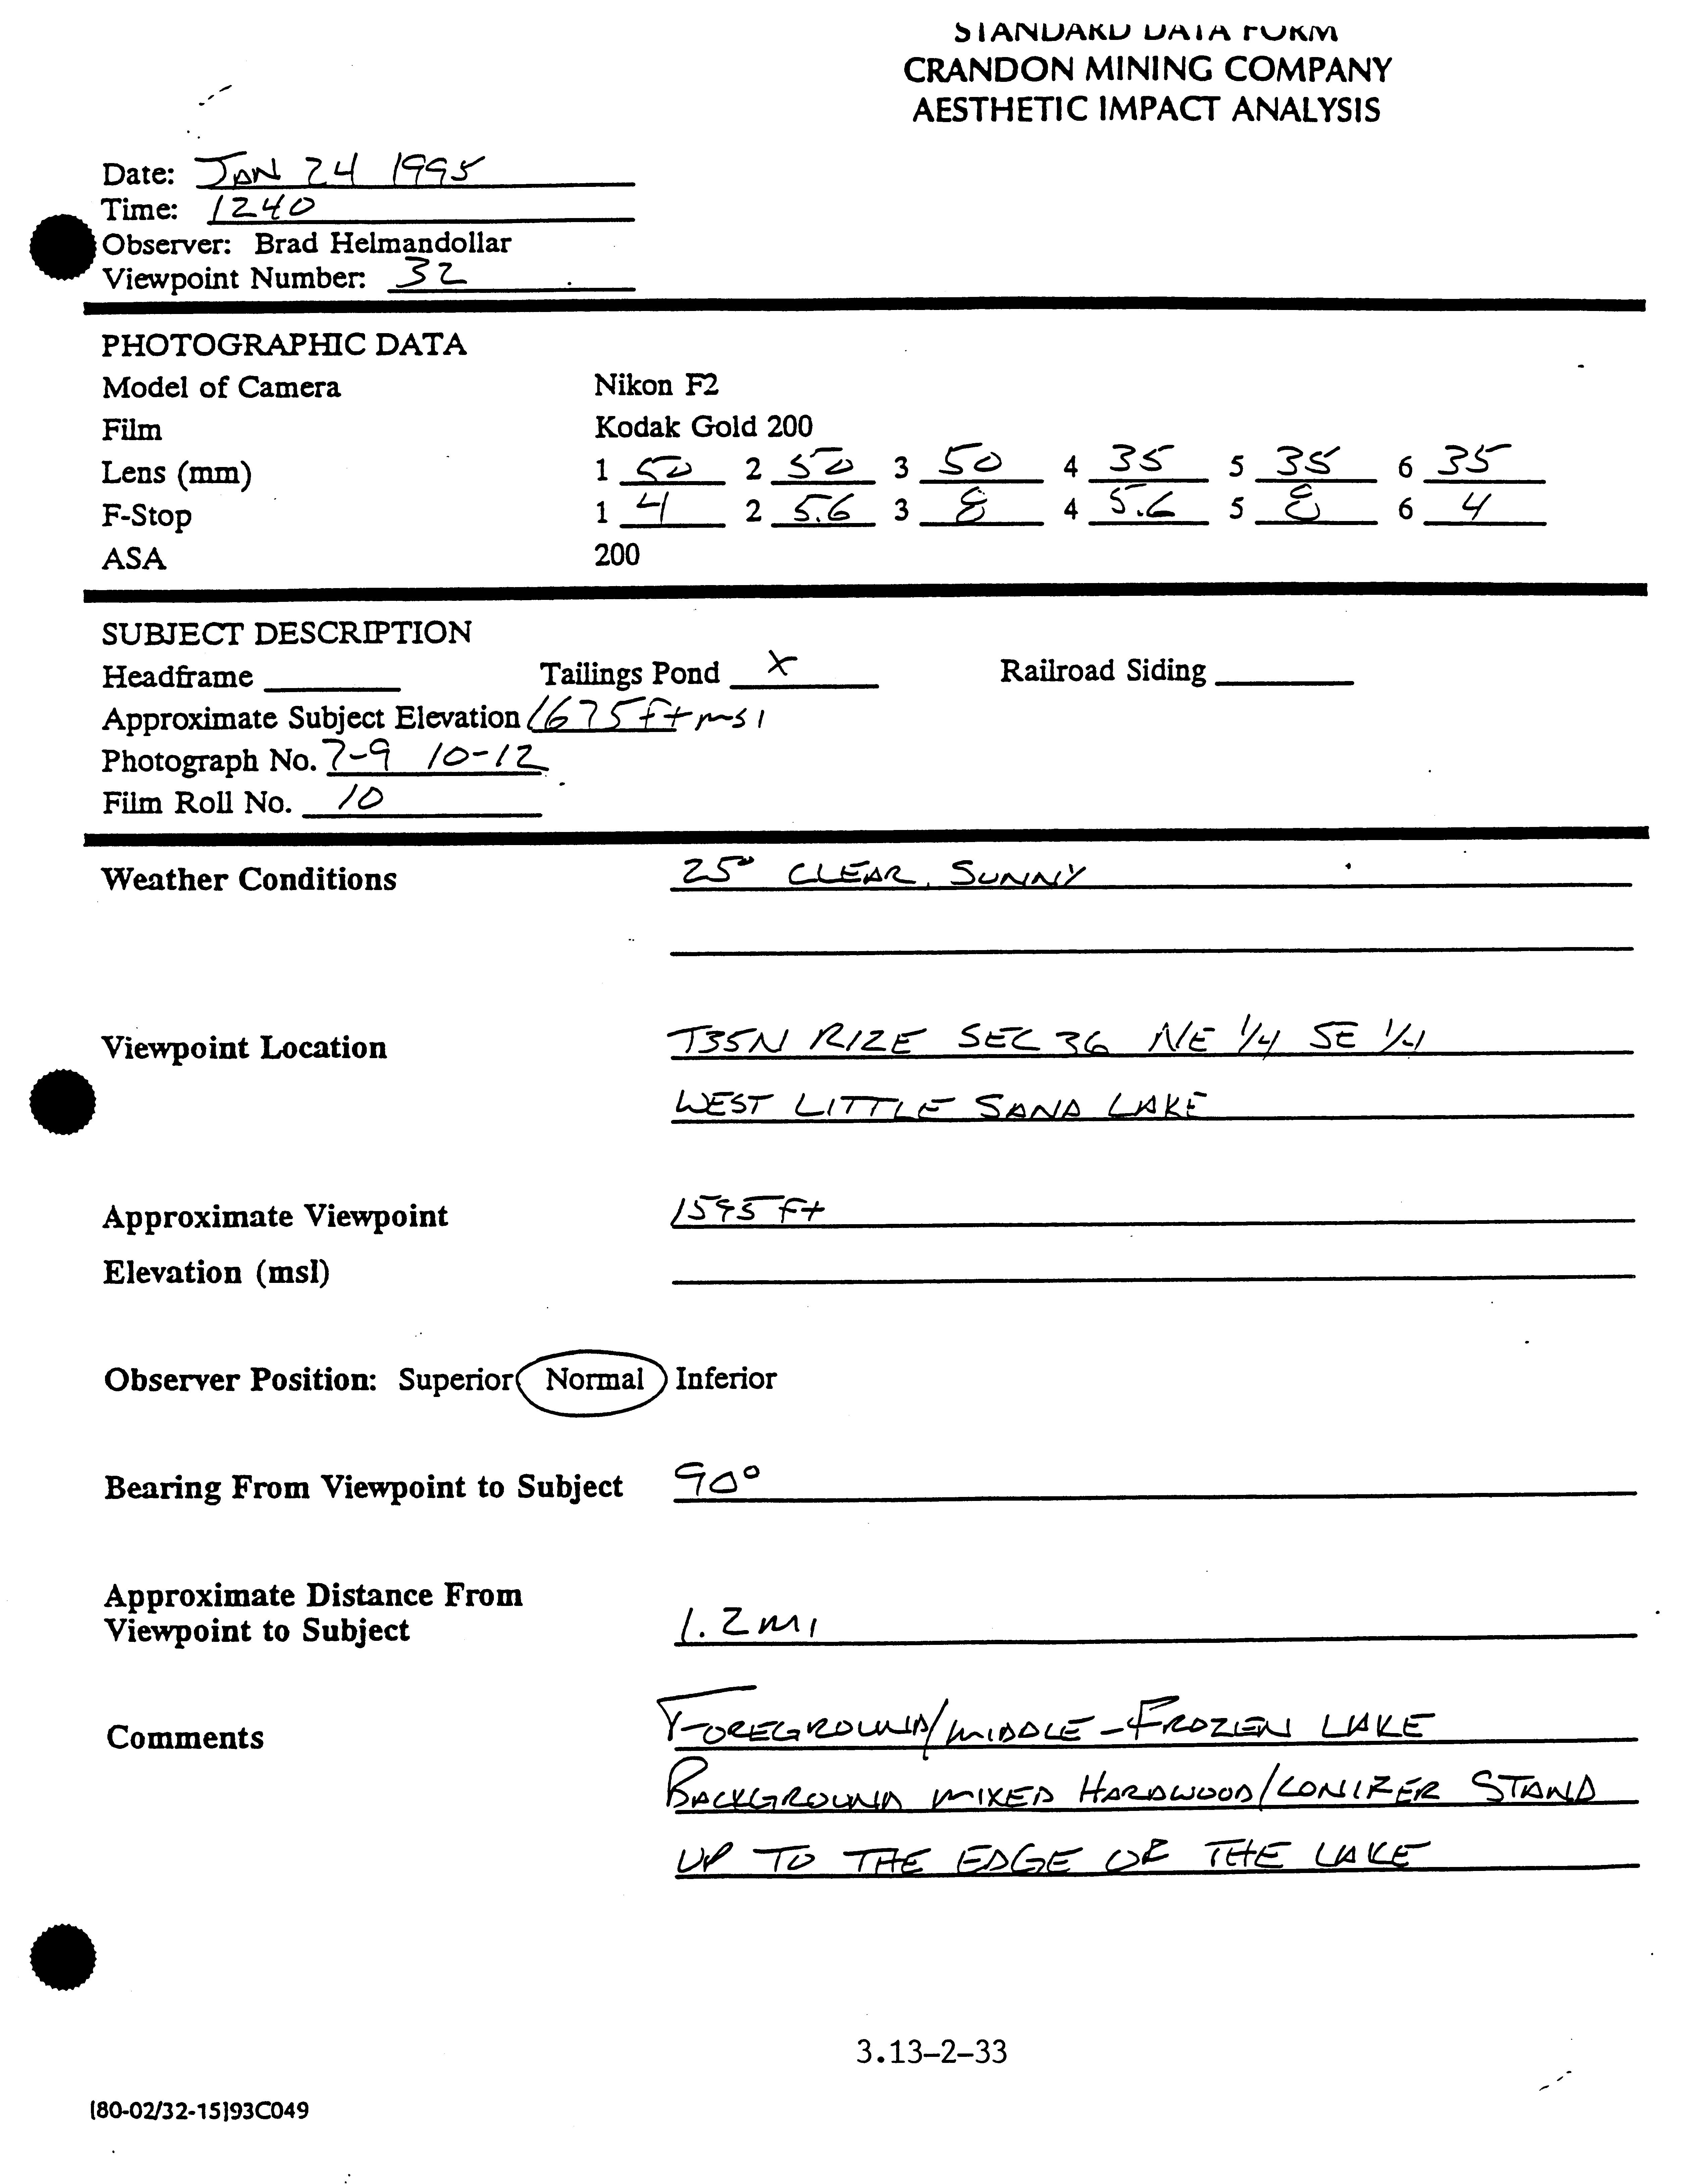 STANDARD DATA FORM
CRANDON MINING COMPANY
AESTHETIC IMPACT ANALYSIS
Date: JAN 24 1995
Time: 1240
Observer: Brad Helmandollar
Viewpoint Number: 32
PHOTOGRAPHIC DATA
Model of Camera Nikon F2
Film Kodak Gold 200
Lens (mm) 1 50 2 50 3 50 4 35 5 35 6 35
F-Stop 1 4 2 5.6 3 8 4 5.6 5 8 6 4
ASA 200
SUBJECT DESCRIPTION
Headframe Tailings Pond X Railroad Siding
Approximate Subject Elevation 1675 ft msl
Photograph No. 7-9 10-12
Film Roll No. 10
Weather Conditions 25° CLEAR, SUNNY
Viewpoint Location T35N R12E SEC 36 NE 1/4 SE 1/4
WEST LITTLE SAND LAKE
Approximate Viewpoint 1595 ft
Elevation (msl)
Observer Position: Superior Normal Inferior
Bearing From Viewpoint to Subject 90°
Approximate Distance From
Viewpoint to Subject 1.2 mi
Comments FOREGROUND/MIDDLE - FROZEN LAKE
BACKGROUND MIXED HARDWOOD/CONIFER STAND
UP TO THE EDGE OF THE LAKE
3.13-2-33
[80-02/32-15]93C049